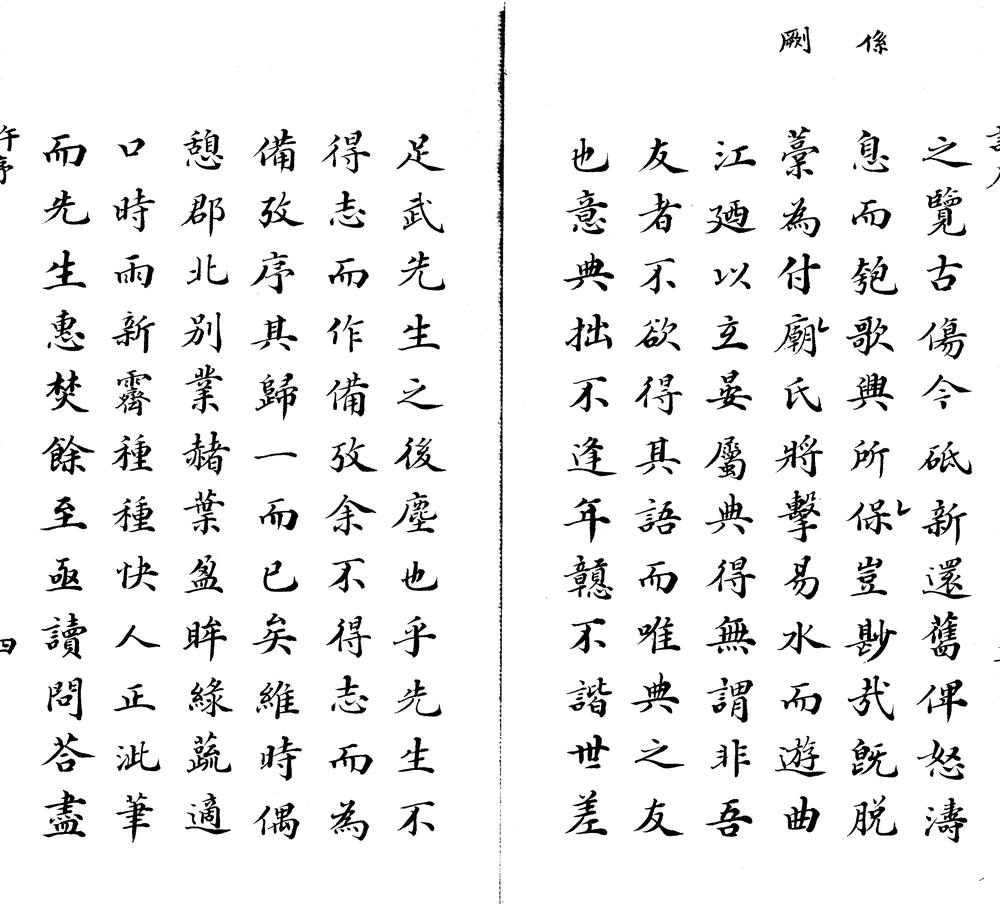 係
劂
之覽古傷今砥新還舊俾怒濤
息而匏歌興所保豈尠哉旣脫
藁為付廟氏將擊易水而遊曲
江廼以立晏屬典得無謂非吾
友者不欲得其語而唯典之友
也意典拙不逢年戇不諧世差
足武先生之後塵也乎先生不
得志而作備攷余不得志而為
備攷序其歸一而已矣維時偶
憩郡北別業赭葉盈眸綠蔬適
口時雨新霽種種快人正泚筆
而先生惠焚餘至亟讀問荅盡
午序
四